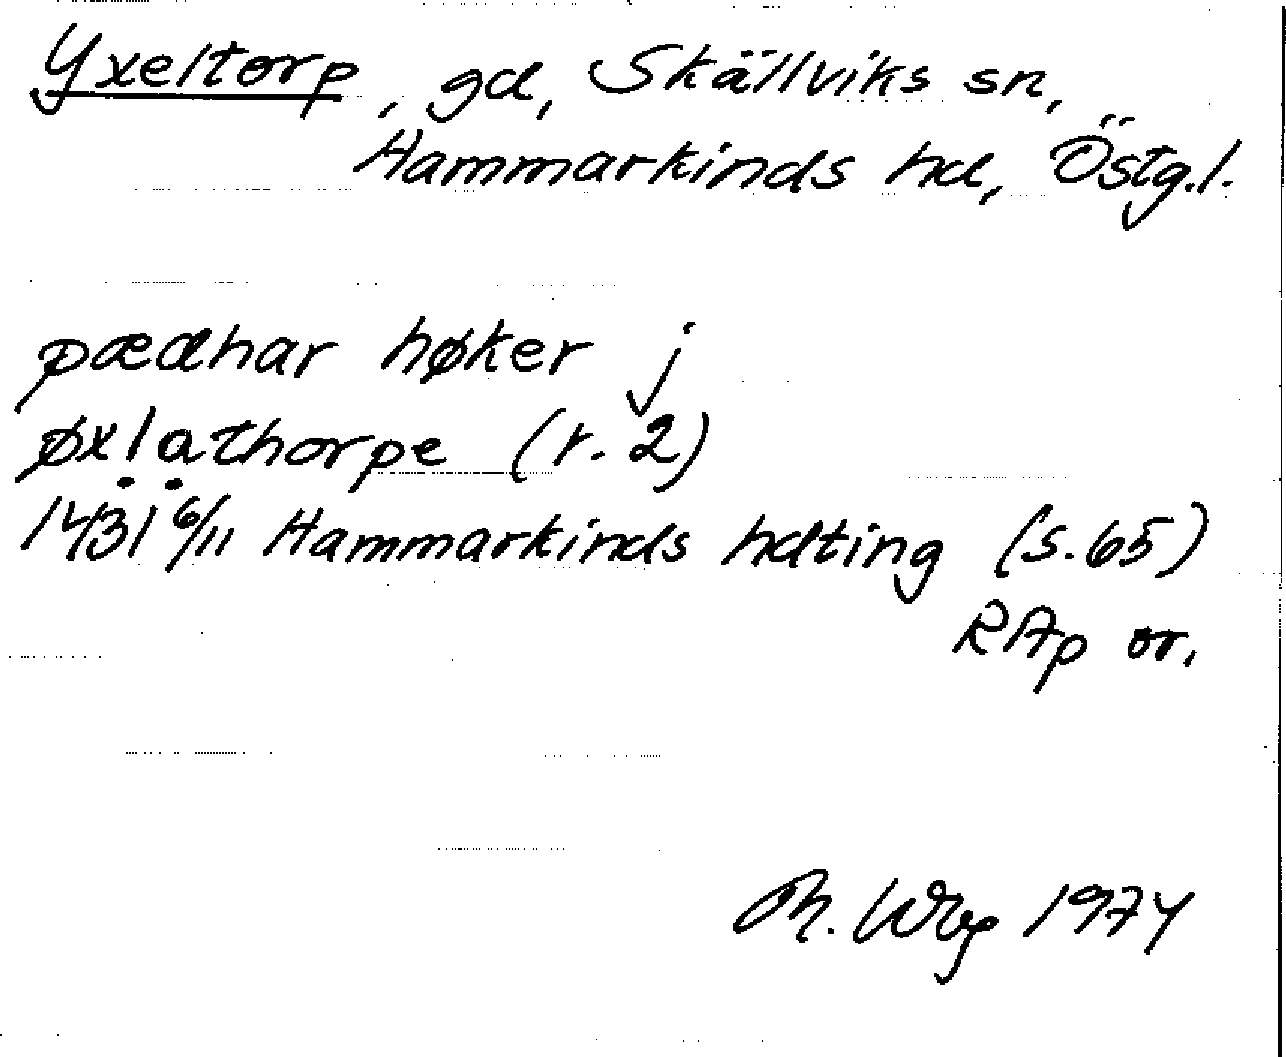 Yxeltorp, gd, Skällviks sn,
Hammarkinds hd, Östg.l.
pædhar høker j
øxlạthorpe (r. 2)
1431 6/11 Hammarkinds hdting (s. 65)
RAp or.
Th. Wbg 1974